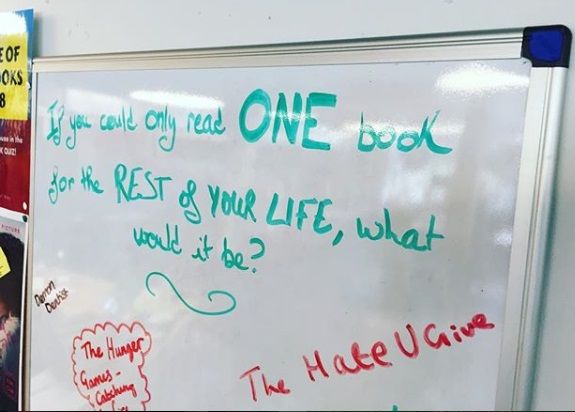 E OF
OOKS
8
If you could only read ONE book
for the REST of YOUR LIFE, what
would it be?
Demon
Dentist
The Hunger
Games-
Catching
The Hate U Give